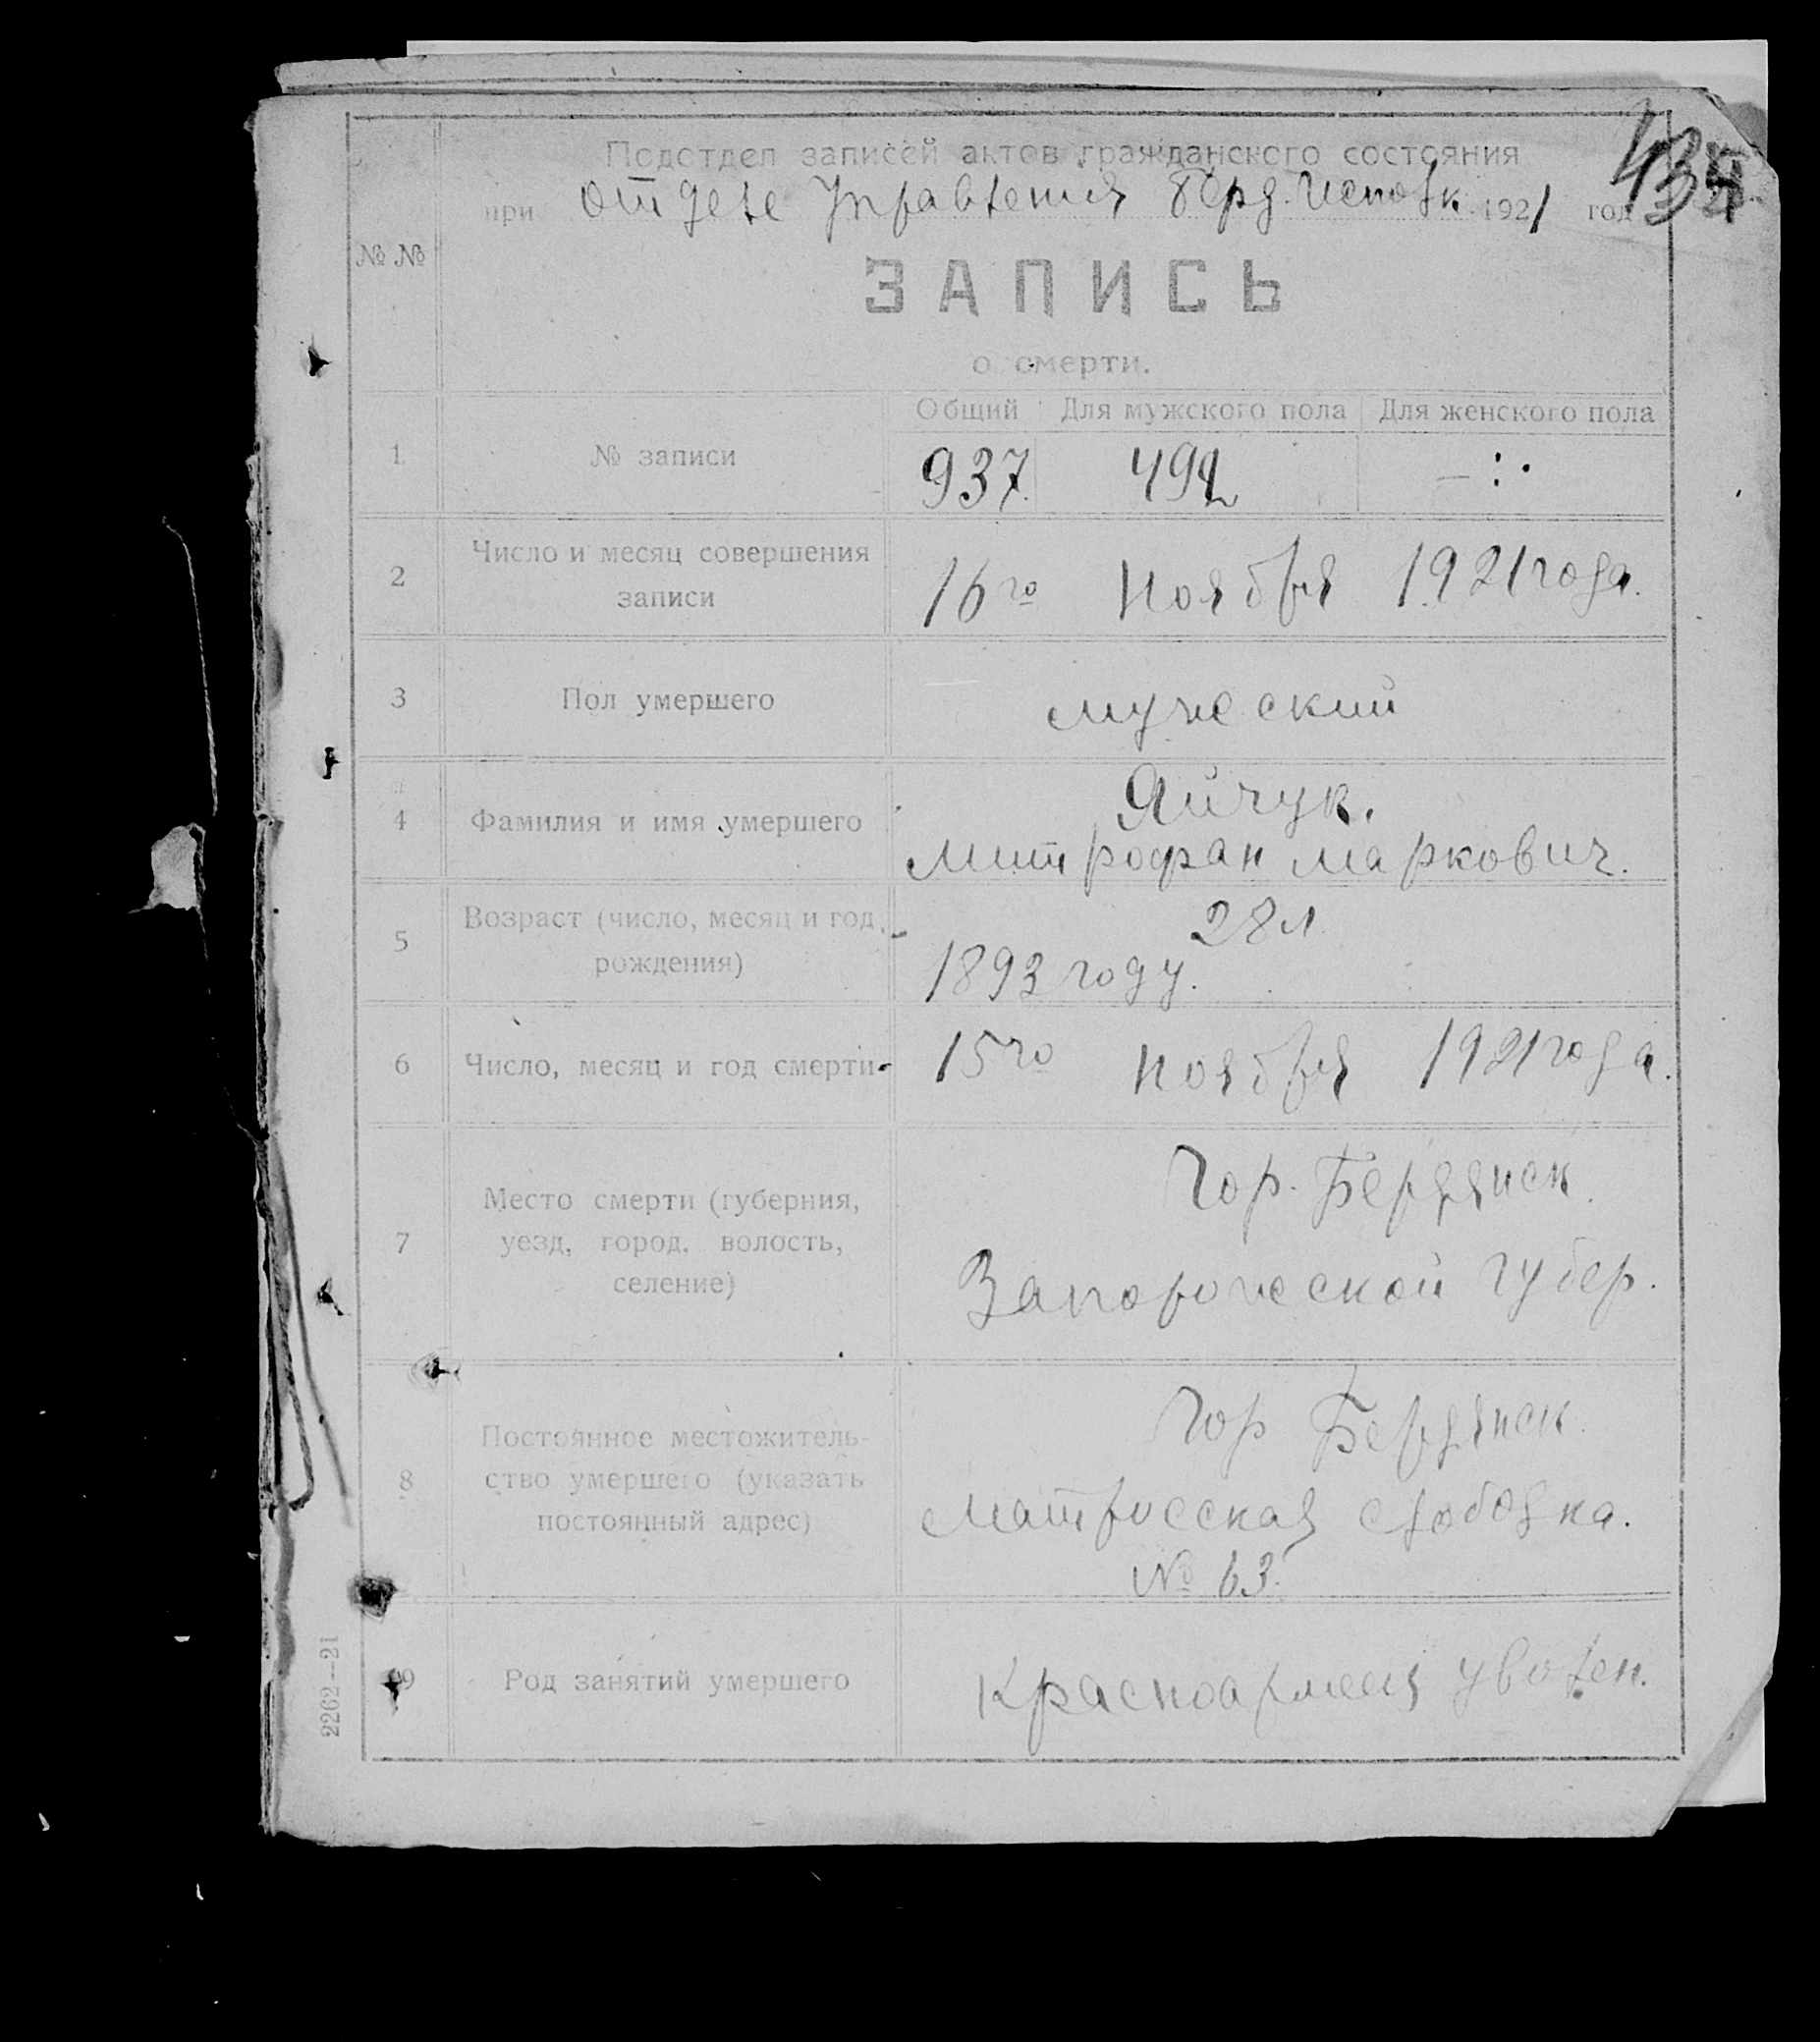 Подотдел записей актов гражданского состояния
при отделе Управления Берд. Исполк. 1921 год
№ №
ЗАПИСЬ
о смерти.
Общий Для мужского пола Для женского пола
1 № записи 937 492 — : ·
2 Число и месяц совершения
записи
16го Ноября 1921 года.
3 Пол умершего мужеский
4 Фамилия и имя умершего
Яйчук.
Митрофан Маркович.
5 Возраст (число, месяц и год
рождения)
28 л
1893 году.
6 Число, месяц и год смерти 15го ноября 1921 года.
7 Место смерти (губерния,
уезд, город, волость,
селение)
Гор. Бердянск.
Запорожеской губер.
8 Постоянное местожитель-
ство умершего (указать
постоянный адрес)
Гор Бердянск.
Матросская слободка.
№ 63.
9 Род занятий умершего Красноармеец уволен.
2262—21